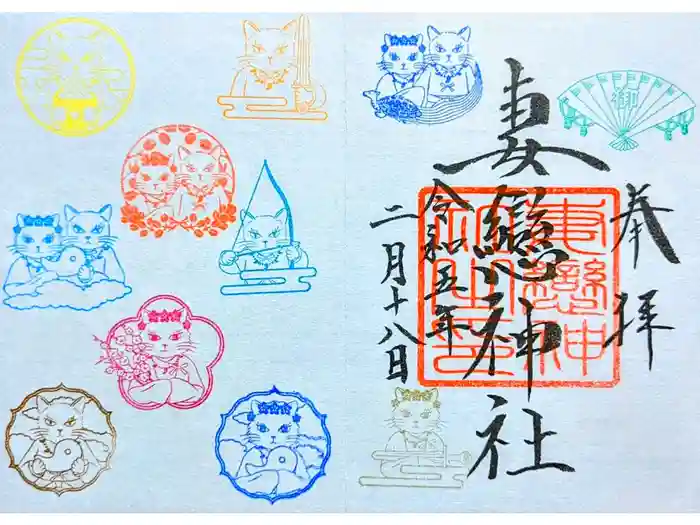 奉拝
妻戀神社
令和五年
二月十八日
御
妻戀神社之印